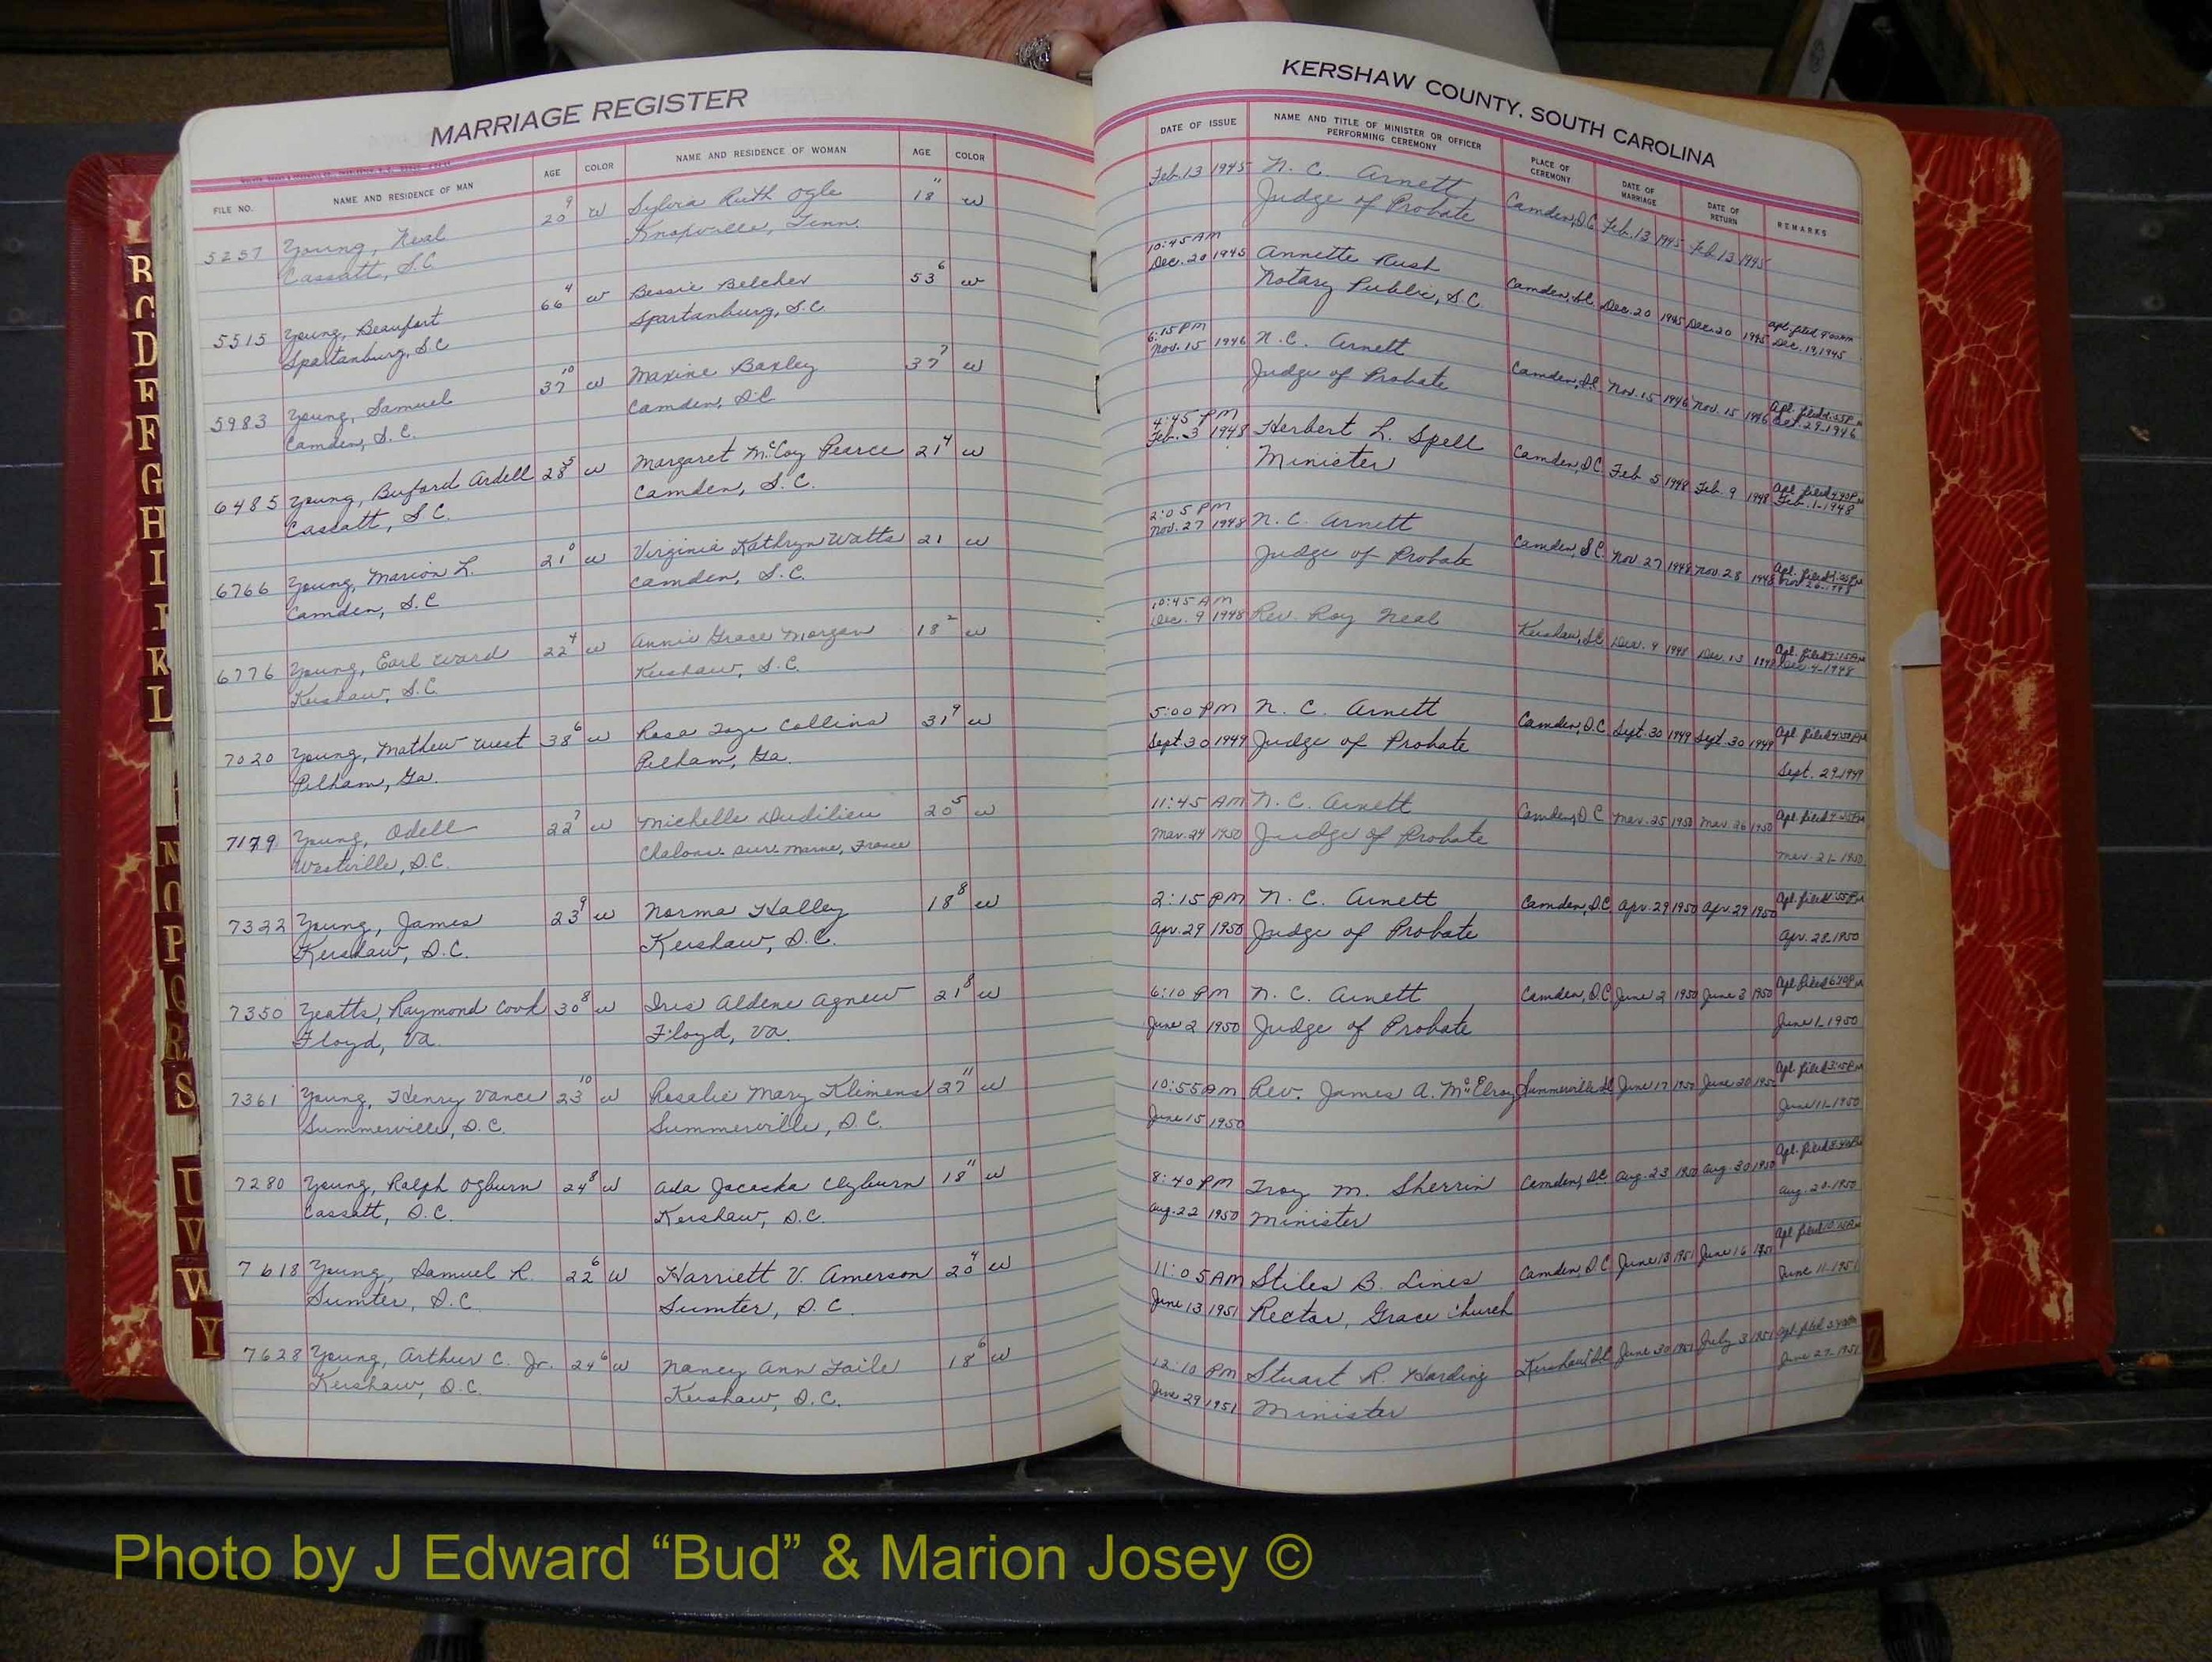 MARRIAGE REGISTER
FILE NO. NAME AND RESIDENCE OF MAN AGE COLOR NAME AND RESIDENCE OF WOMAN AGE COLOR
5257 Young, Neal 20 9 W Sylvia Ruth Ogle 18 11 W
Cassatt, S.C. Knoxville, Tenn.
5515 Young, Beaufort 66 4 W Bessie Belcher 53 6 W
Spartanburg, S.C. Spartanburg, S.C.
5983 Young, Samuel 37 10 W Maxine Baxley 37 7 W
Camden, S.C. Camden, S.C.
6485 Young, Buford Ardell 28 5 W Margaret McCoy Pearce 21 4 W
Cassatt, S.C. Camden, S.C.
6766 Young, Marion L. 21 0 W Virginia Kathryn Watts 21 W
Camden, S.C. Camden, S.C.
6776 Young, Earl Ward 22 4 W Annie Grace Morgan 18 2 W
Kershaw, S.C. Kershaw, S.C.
7020 Young, Mathew West 38 6 W Rosa Collins 31 9 W
Pelham, Ga. Pelham, Ga.
7179 Young, Odell 22 7 W Michelle 20 5 W
Westville, S.C. Chalons Marne, France
7322 Young, James 23 9 W Norma Halley 18 8 W
Kershaw, S.C. Kershaw, S.C.
7350 Yeatts, Raymond Cook 30 8 W Iris Aldene Agnew 21 8 W
Floyd, Va. Floyd, Va.
7361 Young, Henry Vance 23 10 W Rosalie Mary Klimens 27 11 W
Summerville, S.C. Summerville, S.C.
7280 Young, Ralph Ogburn 24 8 W Ada Clyburn 18 11 W
Cassatt, S.C. Kershaw, S.C.
7618 Young, Samuel R. 22 6 W Harriett V. Amerson 20 4 W
Sumter, S.C. Sumter, S.C.
7628 Young, Arthur C. Jr. 24 6 W Nancy Ann Faile 18 6 W
Kershaw, S.C. Kershaw, S.C.
KERSHAW COUNTY, SOUTH CAROLINA
DATE OF ISSUE NAME AND TITLE OF MINISTER OR OFFICER PERFORMING CEREMONY PLACE OF CEREMONY DATE OF MARRIAGE DATE OF RETURN REMARKS
Feb. 13 1945 N. C. Arnett Camden, S.C. Feb. 13 1945 Feb 13 1945
Judge of Probate
10:45 AM
Dec. 20 1945 Annette Rush Camden, S.C. Dec. 20 1945 Dec. 20 1945 Apl. filed
Notary Public, S.C. Dec. 19, 1945
6:15 PM
Nov. 15 1946 N. C. Arnett Camden, S.C. Nov. 15 1946 Nov. 15 1946 Apl. filed
Judge of Probate Oct. 29-1946
4:45 PM
Feb. 3 1948 Herbert L. Spell Camden, S.C. Feb 5 1948 Feb. 9 1948 Apl. filed
Minister Feb. 1-1948
2:05 PM
Nov. 27 1948 N. C. Arnett Camden, S.C. Nov 27 1948 Nov. 28 1948 Apl. filed
Judge of Probate Nov. 26-1948
10:45 AM
Dec. 9 1948 Rev. Roy Neal Kershaw, S.C. Dec. 9 1948 Dec. 13 1948 Apl. filed
Dec. 4-1948
5:00 PM N. C. Arnett Camden, S.C. Sept. 30 1949 Sept. 30 1949 Apl. filed
Sept. 30 1949 Judge of Probate Sept. 29-1949
11:45 AM N. C. Arnett Camden, S.C. Mar. 25 1950 Mar. 26 1950 Apl. filed
Mar. 24 1950 Judge of Probate Mar. 21-1950
2:15 PM N. C. Arnett Camden, S.C. Apr. 29 1950 Apr. 29 1950 Apl. filed
Apr. 29 1950 Judge of Probate Apr. 28-1950
6:10 PM N. C. Arnett Camden, S.C. June 2 1950 June 3 1950 Apl. filed
June 2 1950 Judge of Probate June 1-1950
10:55 AM Rev. James A. McElroy Summerville SC June 17 1950 June 20 1950 Apl. filed
June 15 1950 June 11-1950
8:40 PM Troy M. Sherrin Camden, S.C. Aug. 23 1950 Aug. 30 1950 Apl. filed
Aug. 22 1950 Minister Aug. 20-1950
11:05 AM Stiles B. Lines Camden, S.C. June 13 1951 June 16 1951 Apl. filed
June 13 1951 Rector, Grace Church June 11-1951
12:10 PM Stuart R. Harding Kershaw SC June 30 1951 July 3 1951 Apl. filed
June 29 1951 Minister June 27-1951
D
F
G
H
I
K
L
N
O
P
Q
R
S
U
V
W
Y
Z
Photo by J Edward “Bud” & Marion Josey ©